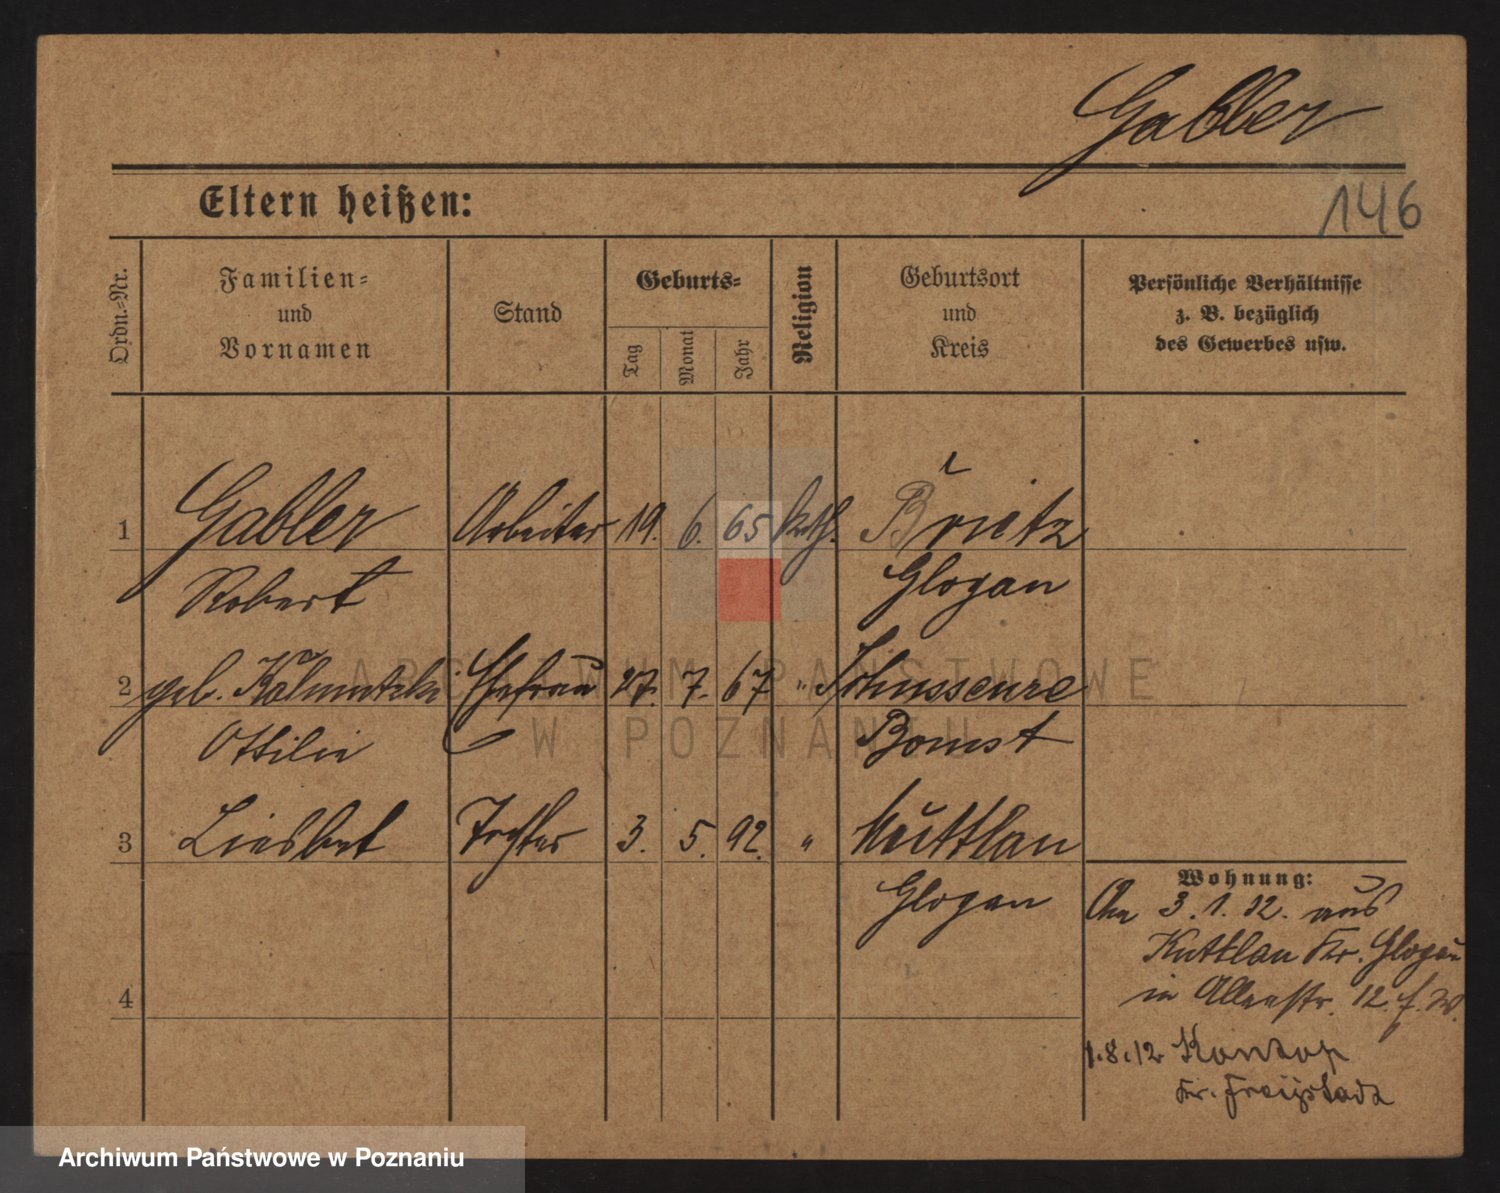 Gabler
Eltern heißen:
146
Ordn.-Nr.
Familien-
und
Vornamen
Stand
Geburts-
Tag
Monat
Jahr
Religion
Geburtsort
und
Kreis
Persönliche Verhältnisse
z. B. bezüglich
des Gewerbes usw.
1 Gabler Arbeiter 19. 6. 65 kath. Brietz
Robert Glogau
2 geb. Kalmutzki Ehefrau 27. 7. 67 "
Ottilie Bomst
3 Liesbet Tochter 3. 5. 92. " Kuttlau
Glogau
4
Wohnung:
An 3.1.12. aus
Kuttlau Kr. Glogau
in 12.
1.8.12 Kontop
Kr. Freystadt
ARCHIWUM PAŃSTWOWE
W POZNANIU
Archiwum Państwowe w Poznaniu